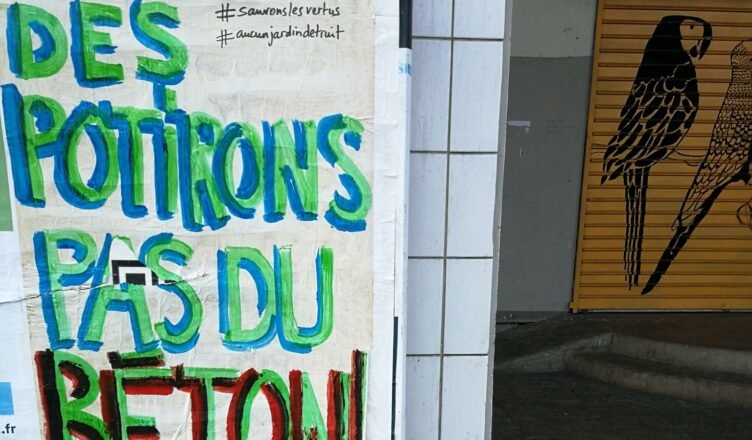 #sauronslesvertus
#aucunjardindetruit
DES
POTIRONS
PAS DU
BÉTON!
.fr